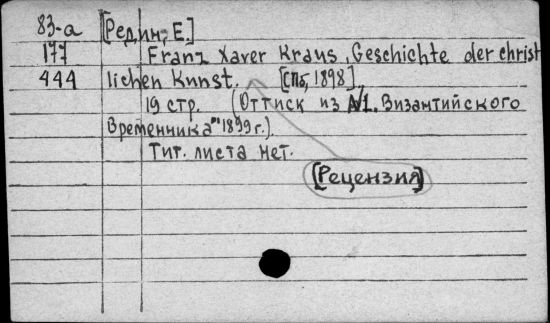 83-а [Редин, Е.]
177 Franz Xaver Kraus, Geschichte der christ
444 lichen Kunst. [СПб, 1898]
19 стр. (Оттиск из №1. Византийского
Временника" 1899 г.).
Тит. листа нет.
[Рецензия]